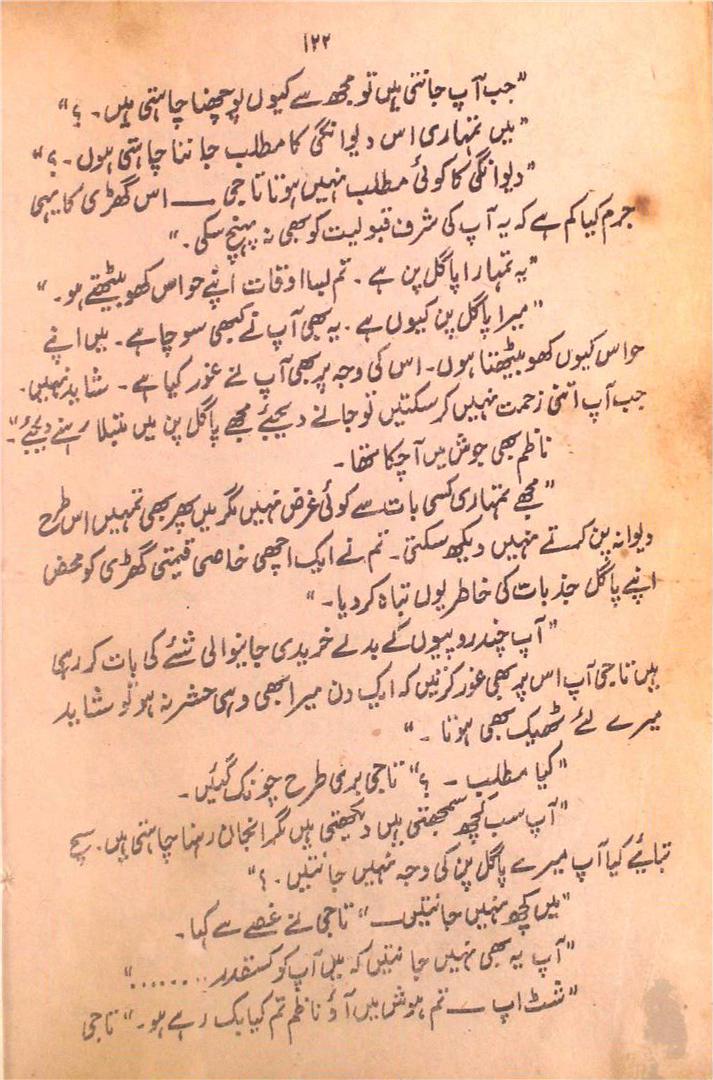 ۱۲۲
"جب آپ جانتی ہیں تو مجھ سے کیوں پوچھنا چاہتی ہیں۔ ؟"
"میں تمہاری اس دیوانگی کا مطلب جاننا چاہتی ہوں۔ ؟"
"دیوانگی کا کوئی مطلب نہیں ہوتا تاجی — اس گھڑی کا یہی
جرم کیا کم ہے کہ یہ آپ کی شرف قبولیت کو بھی نہ پہنچ سکی۔"
"یہ تمہارا پاگل پن ہے۔ تم بسا اوقات اپنے حواس کھو بیٹھتے ہو۔"
"میرا پاگل پن کیوں ہے۔ یہ بھی آپ نے کبھی سوچا ہے۔ میں اپنے
حواس کیوں کھو بیٹھتا ہوں۔ اس کی وجہ پر بھی آپ نے غور کیا ہے۔ شاید نہیں۔
جب آپ اتنی زحمت نہیں کر سکتیں تو جانے دیجئے مجھے پاگل پن میں مبتلا رہنے دیجئے"۔
ناظم بھی جوش میں آ چکا تھا۔
"مجھے تمہاری کسی بات سے کوئی غرض نہیں مگر میں پھر بھی تمہیں اس طرح
دیوانہ پن کرتے نہیں دیکھ سکتی۔ تم نے ایک اچھی خاصی قیمتی گھڑی کو محض
اپنے پاگل جذبات کی خاطر یوں تباہ کر دیا۔"
"آپ چند روپیوں کے بدلے خریدی جانیوالی شئے کی بات کر رہی
ہیں تاجی آپ اس پر بھی غور کرتیں کہ ایک دن میرا بھی وہی حشر نہ ہو تو شاید
میرے لئے ٹھیک بھی ہوتا۔"
"کیا مطلب۔ ؟" تاجی بری طرح چونک گئیں۔
"آپ سب کچھ سمجھتی ہیں دیکھتی ہیں مگر انجان رہنا چاہتی ہیں۔ سچ
بتائیے کیا آپ میرے پاگل پن کی وجہ نہیں جانتیں۔ ؟"
"میں کچھ نہیں جانتیں —" تاجی نے غصے سے کہا۔
"آپ یہ بھی نہیں جانتیں کہ میں آپ کو کسقدر ........"
"شٹ اپ — تم ہوش میں آؤ ناظم تم کیا بک رہے ہو۔" تاجی